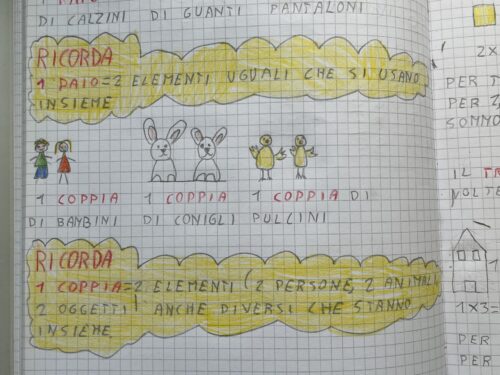 DI CALZINI DI GUANTI PANTALONI
RICORDA
1 PAIO=2 ELEMENTI UGUALI CHE SI USANO
INSIEME
1 COPPIA 1 COPPIA 1 COPPIA DI
DI BAMBINI DI CONIGLI PULCINI
RICORDA
1 COPPIA=2 ELEMENTI (2 PERSONE, 2 ANIMALI,
2 OGGETTI) ANCHE DIVERSI CHE STANNO
INSIEME
2X
PER
PER
SOMMO
IL
VOLTE
1x3=
PER
PER